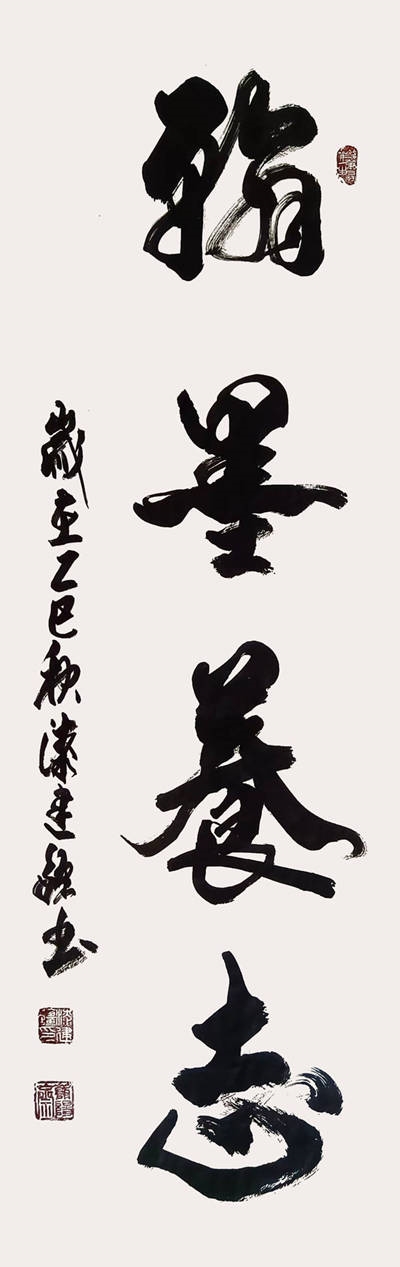 翰墨養志
歲在乙巳秋漆建毅书